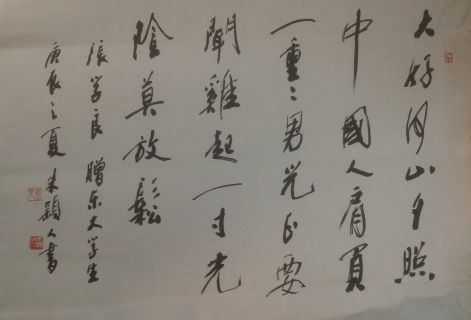 大好河山夕照
中國人肩負
一重々男兒正要
聞雞起一寸光
陰莫放鬆
張学良 贈东大学生
庚辰之夏 朱穎人書